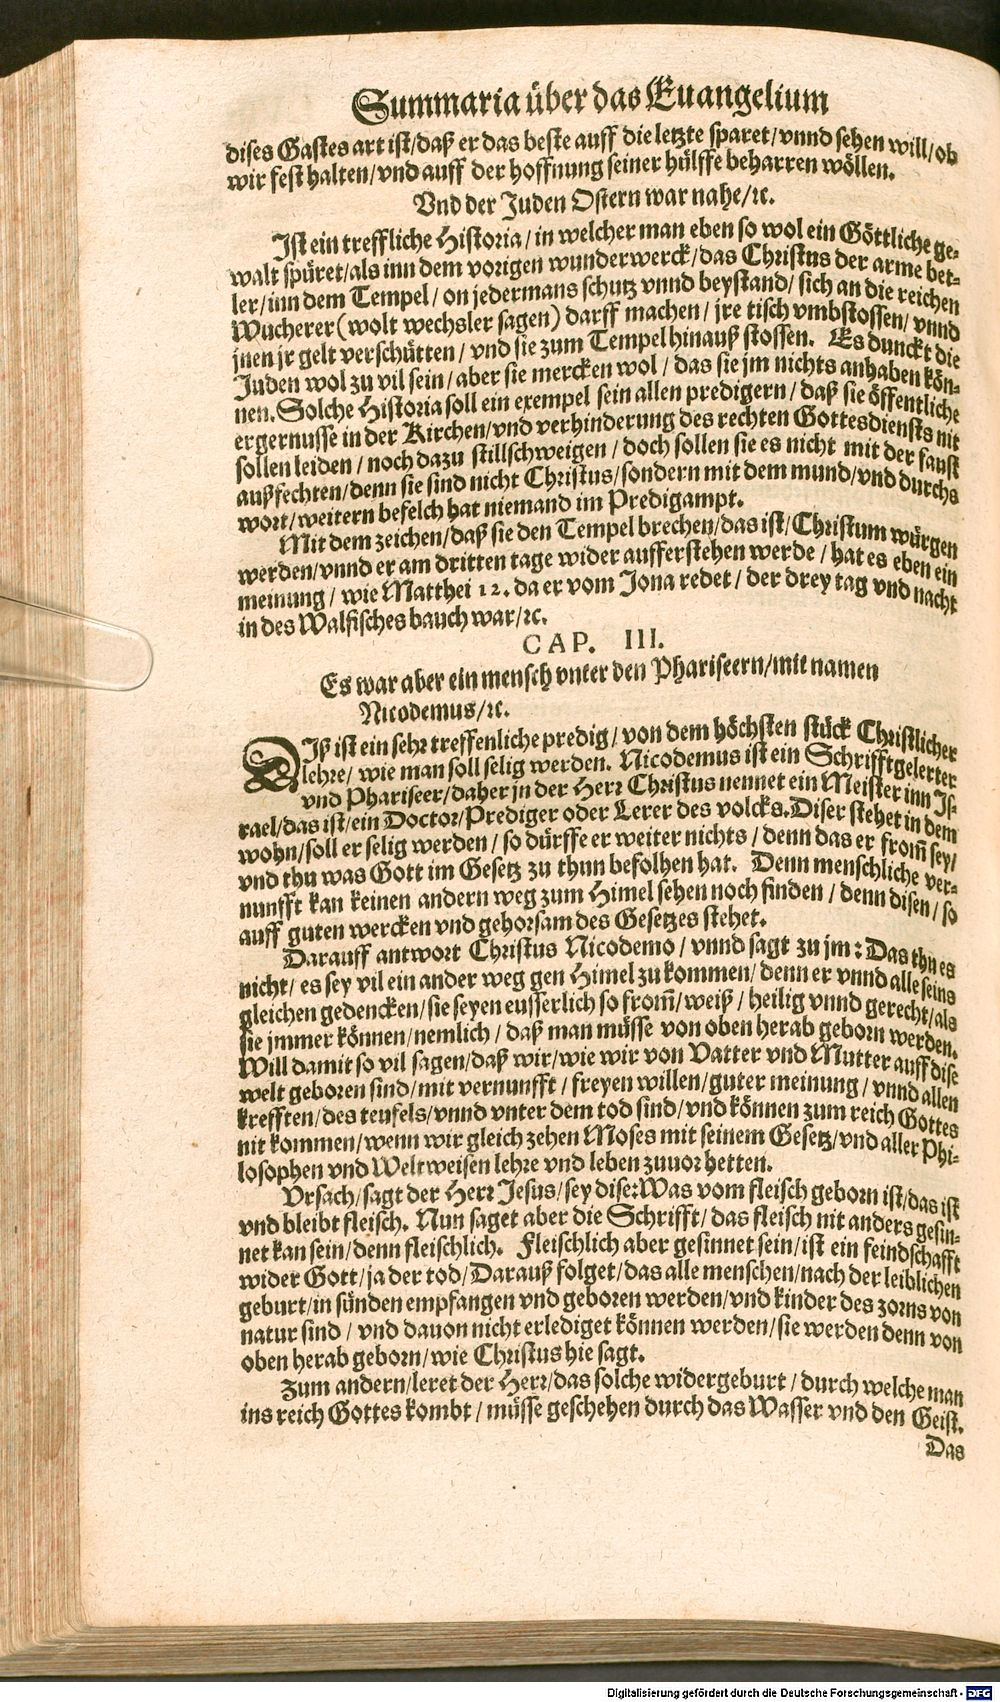 Summaria über das Euangelium
dises Gastes art ist/daß er das beste auff die letzte sparet/vnnd sehen will/ob
wir fest halten/vnd auff der hoffnung seiner hülffe beharren wöllen.
Vnd der Juden Ostern war nahe/ꝛc.
Ist ein treffliche Historia/in welcher man eben so wol ein Göttliche ge-
walt spüret/als inn dem vorigen wunderwerck/das Christus der arme bet-
ler/inn dem Tempel/on jedermans schutz vnnd beystand/sich an die reichen
Wucherer(wolt wechsler sagen) darff machen/jre tisch vmbstossen/vnnd
jnen jr gelt verschütten/vnd sie zum Tempel hinauß stossen. Es dunckt die
Juden wol zu vil sein/aber sie mercken wol/das sie jm nichts anhaben kön-
nen. Solche Historia soll ein exempel sein allen predigern/daß sie öffentliche
ergernusse in der Kirchen/vnd verhinderung des rechten Gottesdiensts nit
sollen leiden/noch dazu stillschweigen/doch sollen sie es nicht mit der faust
außfechten/denn sie sind nicht Christus/sondern mit dem mund/vnd durchs
wort/weitern befelch hat niemand im Predigampt.
Mit dem zeichen/daß sie den Tempel brechen/das ist/Christum würgen
werden/vnnd er am dritten tage wider aufferstehen werde/hat es eben ein
meinung/wie Matthei 12. da er vom Jona redet/der drey tag vnd nacht
in des Walfisches bauch war/ꝛc.
CAP. III.
Es war aber ein mensch vnter den Phariseern/mit namen
Nicodemus/ꝛc.
Diß ist ein sehr treffenliche predig/von dem höchsten stück Christlicher
lehre/wie man soll selig werden. Nicodemus ist ein Schrifftgelerter
vnd Phariseer/daher jn der Herr Christus nennet ein Meister inn Js-
rael/das ist/ein Doctor/Prediger oder Lerer des volcks. Diser stehet in dem
wohn/soll er selig werden/so dürffe er weiter nichts/denn das er from̃ sey/
vnd thu was Gott im Gesetz zu thun befolhen hat. Denn menschliche ver-
nunfft kan keinen andern weg zum Himel sehen noch finden/denn disen/so
auff guten wercken vnd gehorsam des Gesetzes stehet.
Darauff antwort Christus Nicodemo/vnnd sagt zu jm: Das thu es
nicht/es sey vil ein ander weg gen Himel zu kommen/denn er vnnd alle seins
gleichen gedencken/sie seyen eusserlich so from̃/weiß/heilig vnnd gerecht/als
sie jmmer können/nemlich/daß man müsse von oben herab geborn werden.
Will damit so vil sagen/daß wir/wie wir von Vatter vnd Mutter auff dise
welt geboren sind/mit vernunfft/freyen willen/guter meinung/vnnd allen
krefften/des teufels/vnnd vnter dem tod sind/vnd können zum reich Gottes
nit kommen/wenn wir gleich zehen Moses mit seinem Gesetz/vnd aller Phi-
losophen vnd Weltweisen lehre vnd leben zuuor hetten.
Vrsach/sagt der Herr Jesus/sey dise: Was vom fleisch geborn ist/das ist
vnd bleibt fleisch. Nun saget aber die Schrifft/das fleisch nit anders gesin-
net kan sein/denn fleischlich. Fleischlich aber gesinnet sein/ist ein feindschafft
wider Gott/ja der tod/Darauß folget/das alle menschen/nach der leiblichen
geburt/in sünden empfangen vnd geboren werden/vnd kinder des zorns von
natur sind/vnd dauon nicht erlediget können werden/sie werden denn von
oben herab geborn/wie Christus hie sagt.
Zum andern/leret der Herr/das solche widergeburt/durch welche man
ins reich Gottes kombt/müsse geschehen durch das Wasser vnd den Geist.
Das
Digitalisierung gefördert durch die Deutsche Forschungsgemeinschaft - DFG